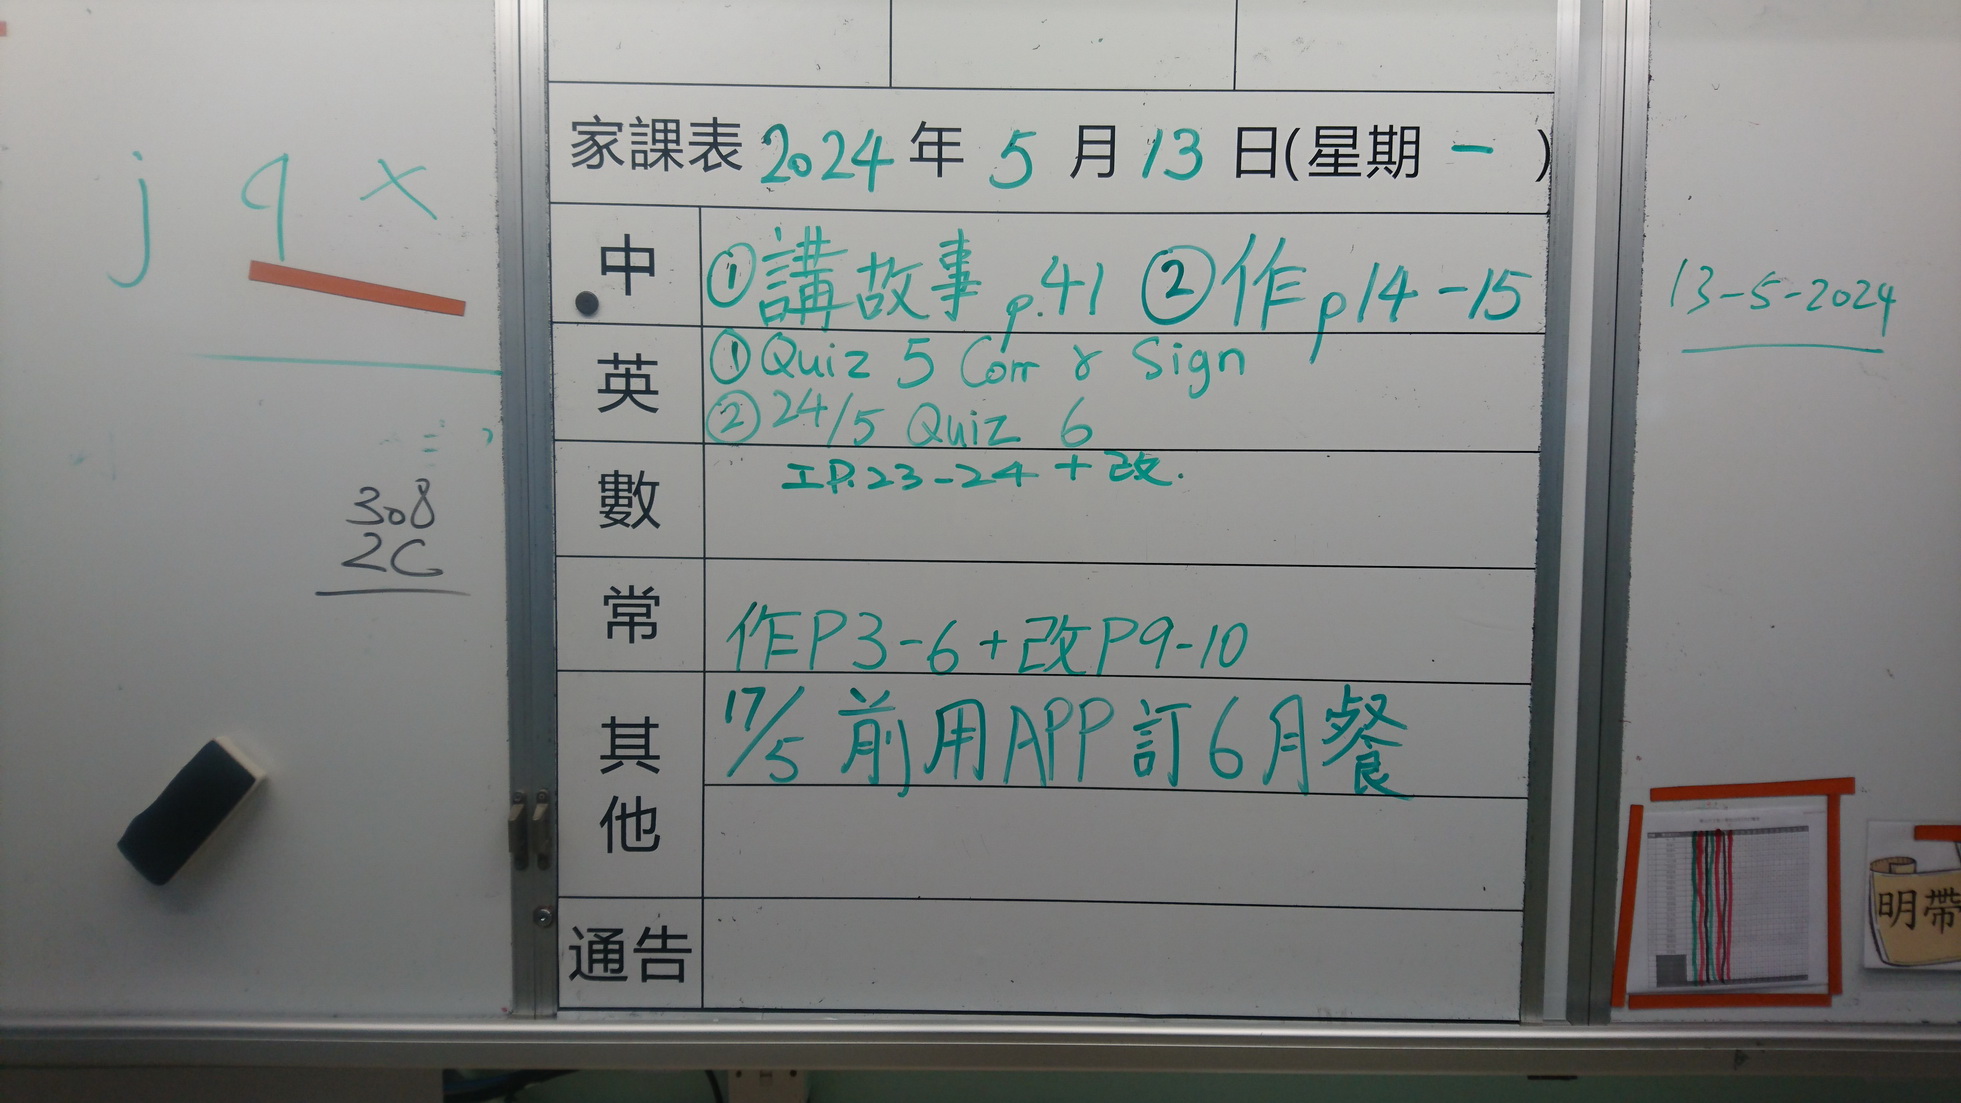 j q x
308
2C
家課表 2024 年 5 月 13 日(星期 一 )
中 ①講故事 p.41 ②作 p14-15
英 ①Quiz 5 Corr & Sign
②24/5 Quiz 6
數 工P.23-24 + 改.
常 作P3-6+改P9-10
其他 17/5 前用APP訂6月餐
通告
13-5-2024
明帶